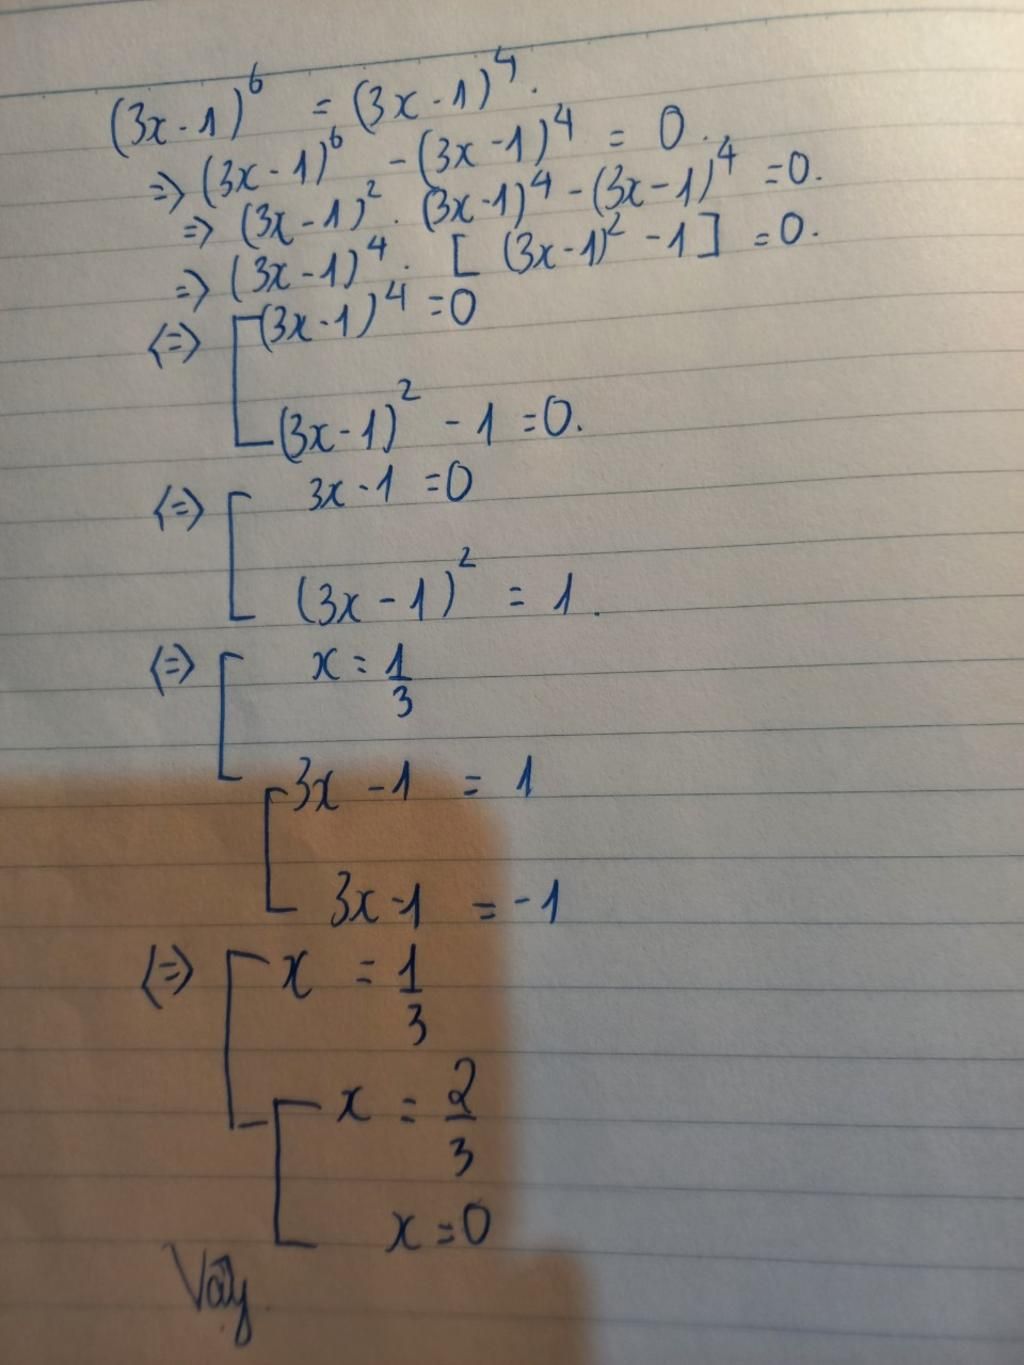 (3x-1)^6 = (3x-1)^4.
=> (3x-1)^6 - (3x-1)^4 = 0.
=> (3x-1)^2 . (3x-1)^4 - (3x-1)^4 = 0.
=> (3x-1)^4 . [ (3x-1)^2 - 1 ] = 0.
<=> [ (3x-1)^4 = 0
(3x-1)^2 - 1 = 0.
<=> [ 3x-1 = 0
(3x-1)^2 = 1.
<=> [ x = 1/3
[ 3x-1 = 1
3x-1 = -1
<=> [ x = 1/3
[ x = 2/3
x = 0
Vậy